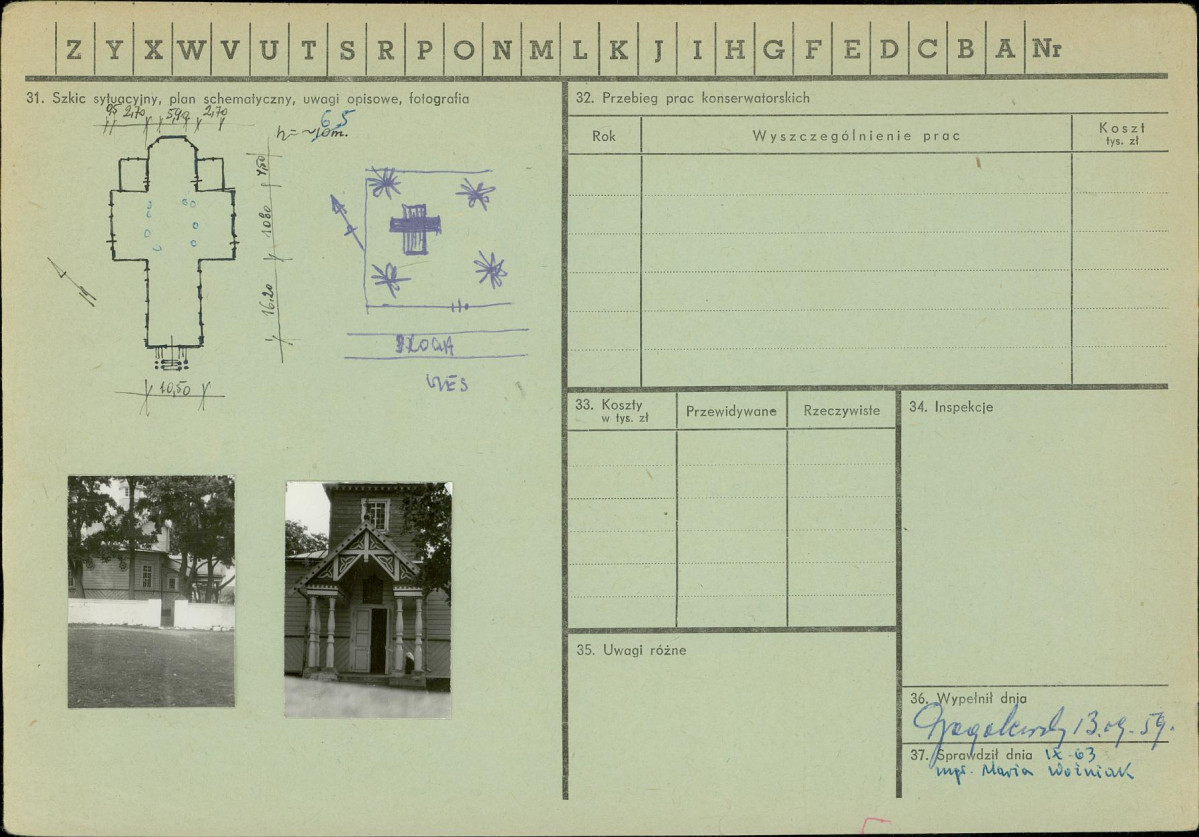 Z Y X W V U T S R P O N M L K J I H G F E D C B A Nr
31. Szkic sytuacyjny, plan schematyczny, uwagi opisowe, fotografia
95 2,70 5,40 2,70
65
h = ~10m.
4,50
10,80
16,20
10,50
DROGA
WIEŚ
32. Przebieg prac konserwatorskich
Rok
Wyszczególnienie prac
Koszt
tys. zł
33. Koszty
w tys. zł
Przewidywane
Rzeczywiste
34. Inspekcje
35. Uwagi różne
36. Wypełnił dnia
13.09.59.
37. Sprawdził dnia IX-63
mgr. Maria Woźniak